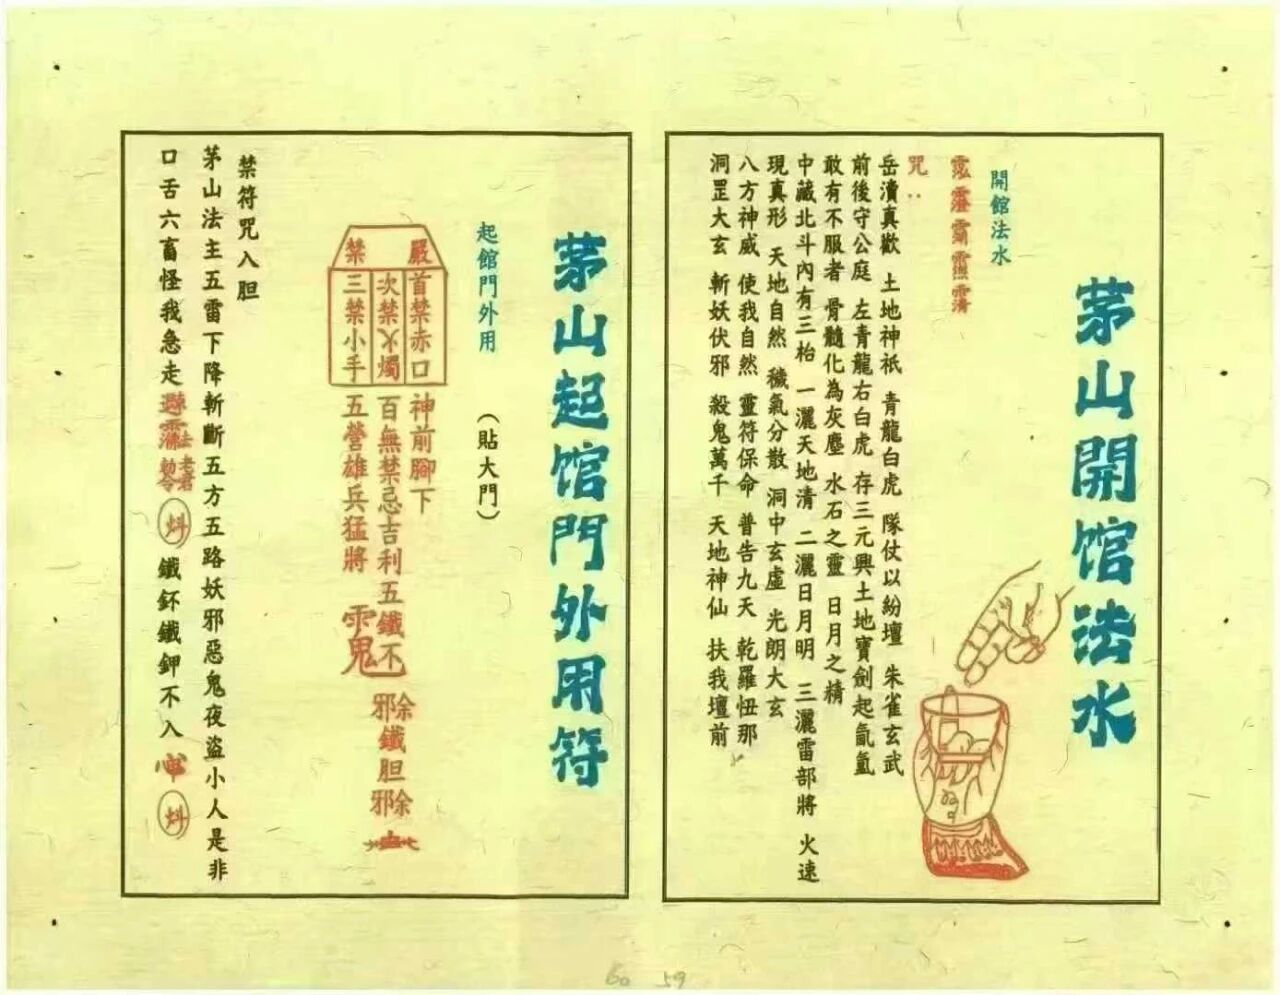 茅山開馆法水
開館法水
咒：
岳瀆真歡 土地神祇 青龍白虎 隊仗以紛壇 朱雀玄武
前後守公庭 左青龍右白虎 存三元興土地寶劍起氤氳
敢有不服者 骨髓化為灰塵 水石之靈 日月之精
中藏北斗內有三枱 一灑天地清 二灑日月明 三灑雷部將 火速
現真形 天地自然 穢氣分散 洞中玄虛 光朗大玄
八方神威 使我自然 靈符保命 普告九天 乾羅忸那
洞罡大玄 斬妖伏邪 殺鬼萬千 天地神仙 扶我壇前
茅山起馆門外用符
起館門外用 (貼大門)
嚴禁
首禁赤口 神前腳下
次禁 燭 百無禁忌吉利五鐵不
三禁小手 五營雄兵猛將
鐵胆
禁符咒入胆
茅山法主五雷下降斬斷五方五路妖邪惡鬼夜盜小人是非
口舌六畜怪我急走 老君勅令 鐵鈈鐵鉀不入
60 59